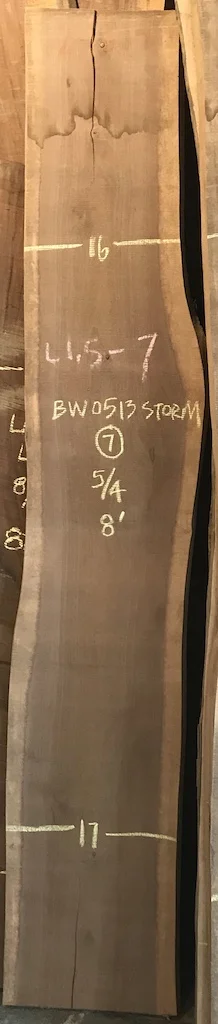 16
L1.5-7
BW0513 STORM
7
5/4
8'
17